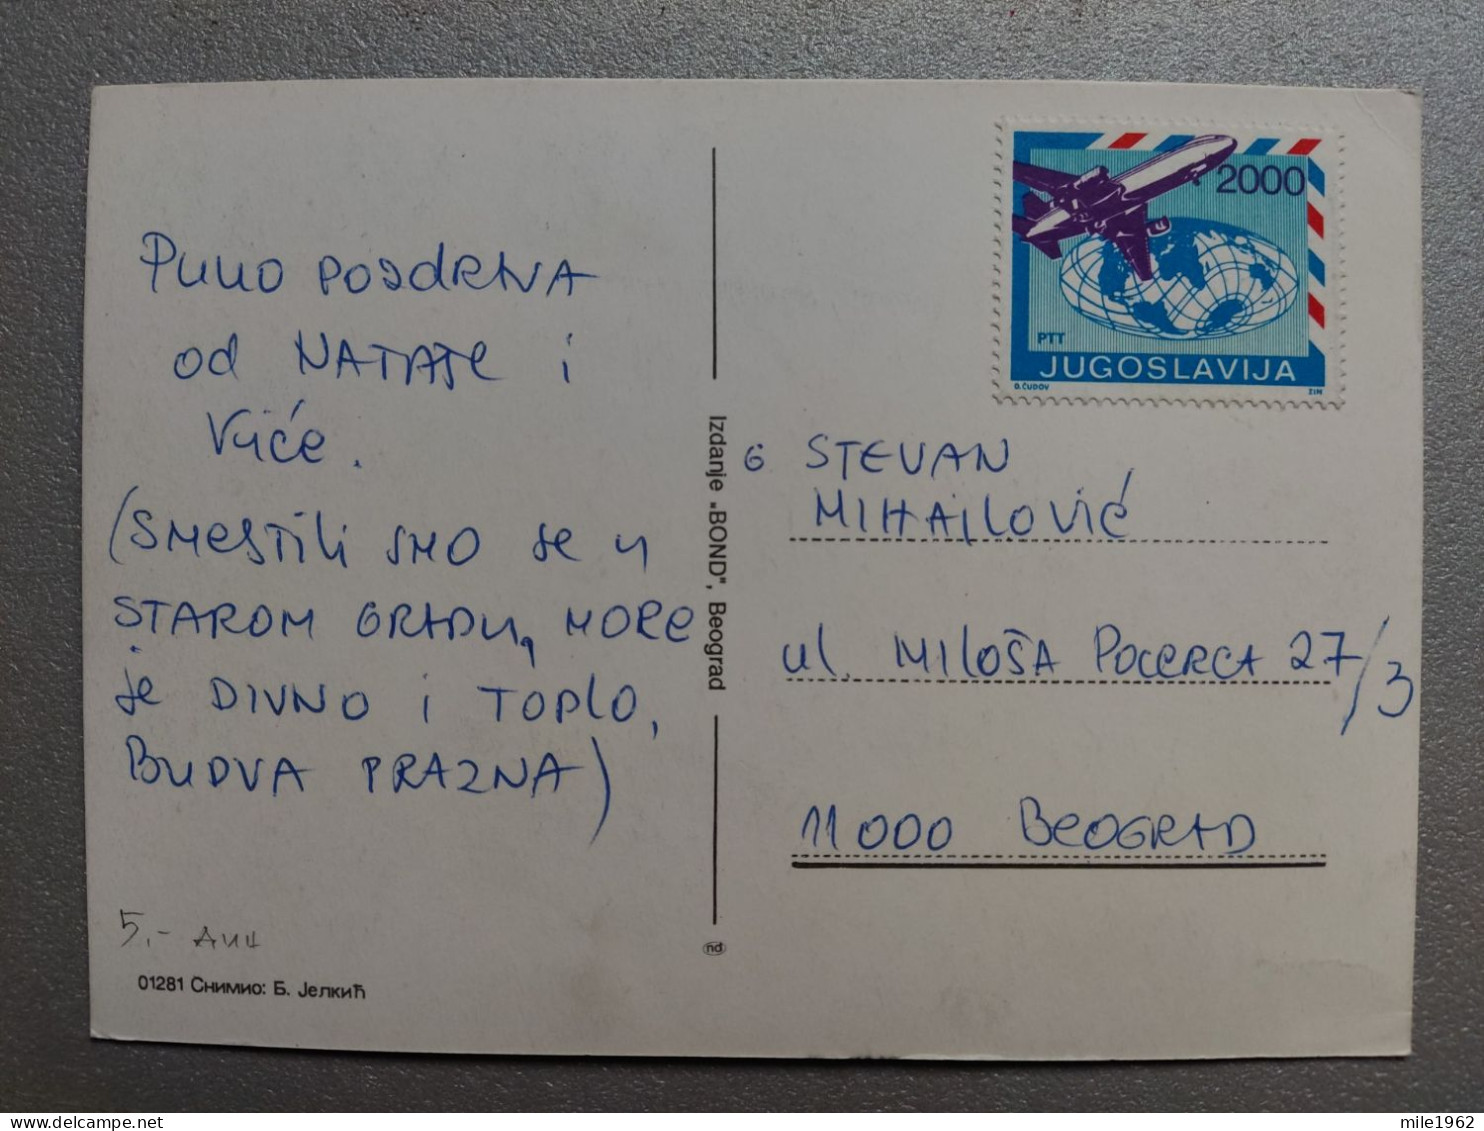 Puno pozdRAVA
od NATAŠE i
Viće.
(SMESTILI SMO SE U
STAROM GRADU, MORE
je DIVNO i TOPLO,
BUDVA PRAZNA)
5.-
01281 Снимио: Б. Јелкић
Izdanje „BOND", Beograd
nd
2000
PTT
JUGOSLAVIJA
D. ČUDOV
ZIN
G STEVAN
MIHAJLOVIĆ
ul. MILOŠA POCERCA 27/3
11000 BEOGRAD
mile1962